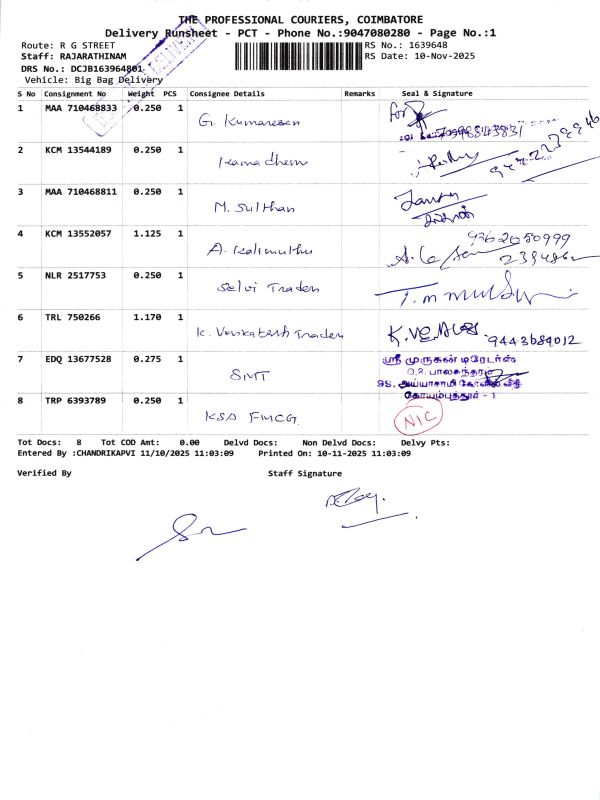 THE PROFESSIONAL COURIERS, COIMBATORE
Delivery Runsheet - PCT - Phone No.:9047080280 - Page No.:1
Route: R G STREET
RS No.: 1639648
Staff: RAJARATHINAM
RS Date: 10-Nov-2025
DRS No.: DCJB163964801
Vehicle: Big Bag Delivery
S No Consignment No Weight PCS Consignee Details Remarks Seal & Signature
1 MAA 710468833 0.250 1 G. Kumaresan for
2 KCM 13544189 0.250 1 Kamadhenu
3 MAA 710468811 0.250 1 M. Sulthan
4 KCM 13552057 1.125 1 A. Kalimuthu 9362050999
5 NLR 2517753 0.250 1 Selvi Traders
6 TRL 750266 1.170 1 K. Venkatesh Traders 9443684012
7 EDQ 13677528 0.275 1 SMT ஸ்ரீ முருகன் டிரேடர்ஸ்
கோயம்புத்தூர் - 1
8 TRP 6393789 0.250 1 KSA FMCG NIC
Tot Docs: 8 Tot COD Amt: 0.00 Delvd Docs: Non Delvd Docs: Delvy Pts:
Entered By :CHANDRIKAPVI 11/10/2025 11:03:09 Printed On: 10-11-2025 11:03:09
Verified By Staff Signature